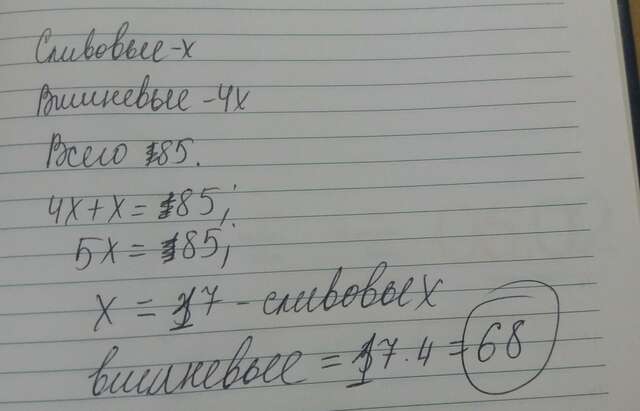 Сливовые - x
Вишневые - 4x
Всего 85.
4x + x = 85;
5x = 85;
x = 17 - сливовых
вишневые = 17 · 4 = 68